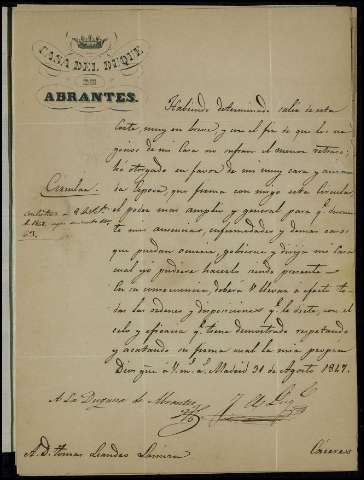 CASA DEL DUQUE
DE
ABRANTES.
Habiendo determinado salir de esta
Corte muy en breve, y con el fin de que los ne-
gocios de mi Casa no sufran el menor retraso,
he otorgado en favor de mi muy cara y amada
Circular.
Esposa, que firma con migo esta circular
el poder mas amplio y general para qe. durante
mis ausencias, enfermedades y demas casos
que puedan ocurrir, gobierne y dirija mi Casa
cual yo pudiera hacerlo siendo presente.
En su consecuencia, deberá V. llevar á efecto to-
das las ordenes y disposiciones qe. le dicte, con el
celo y eficacia qe. tiene demostrado respetando
y acatando su firma cual la mia propia.
Dios gue. a V. m. a. Madrid 31 de Agosto 1847.
A La Duquesa de Abrantes
A. D. Tomas Leandro
Cáceres